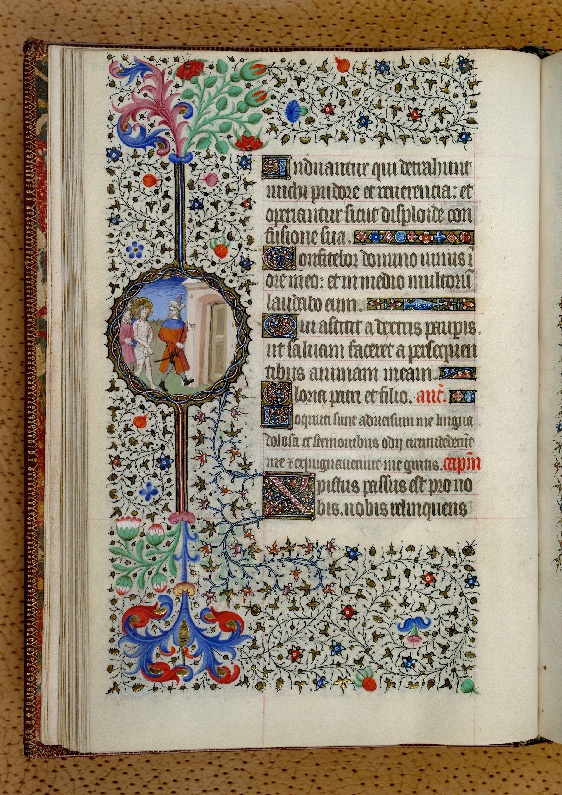 Induantur qui detrahunt
michi pudore et reverencia: et
operiantur sicut disploide con
fusione sua.
Confitebor domino nimis i
ore meo: et in medio multorū
laudabo eum.
Qui astitit a dextris paupis.
ut salvam faceret a persequen
tibus animam meam.
Gloria patri et filio. ant.
Loquti sunt adversum me lingua
dolosa et sermonibus odij circumdederūt
me et expugnaverunt me gratis.
Xpistus passus est pro no
bis. vobis relinquens